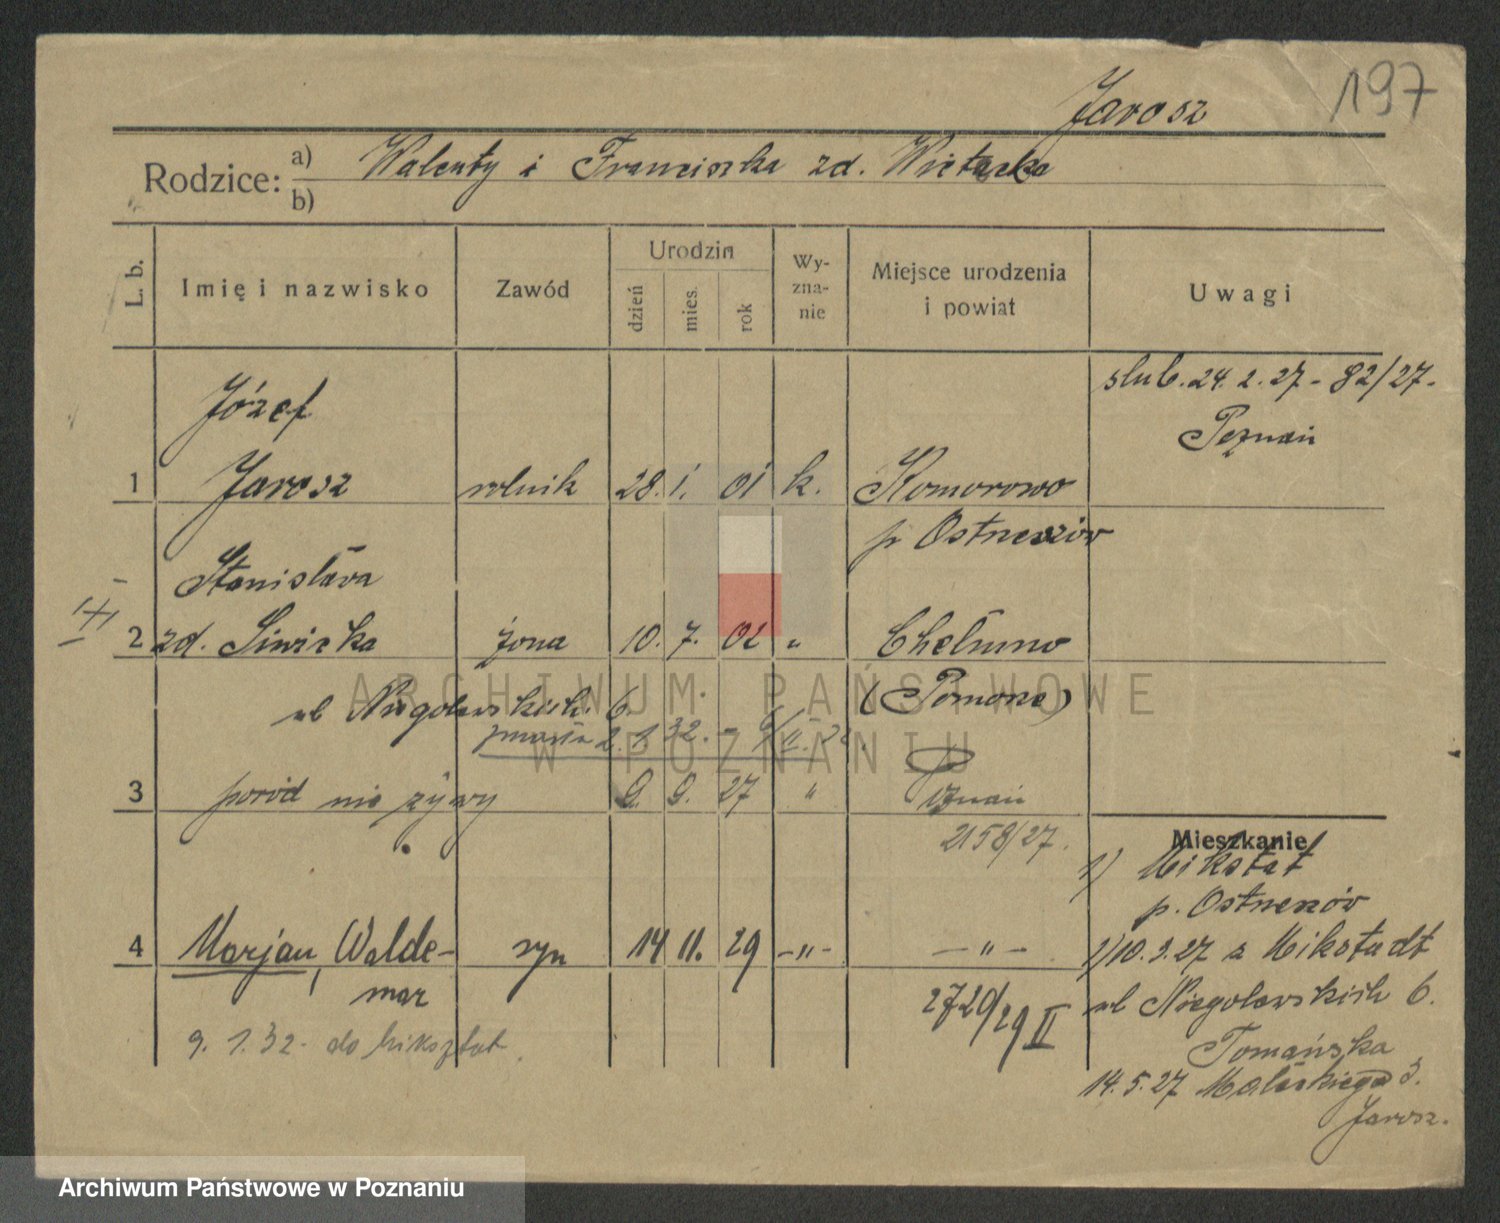 197
Jarosz
Rodzice: a) Walenty i Franciszka zd. Wietecka
b)
L. b. Imię i nazwisko Zawód Urodzin dzień mies. rok Wy-zna-nie Miejsce urodzenia i powiat Uwagi
slub. 24. 2. 27 - 82/27 -
Poznań
Józef
1 Jarosz rolnik 28. 1. 01 k. Komorowo
p Ostrzeszów
Stanisława
2 zd. Siwicka żona 10. 7. 02 " Chełmno
(Pomorze)
ul Niegolewskich 6.
zmarła 2. 1 32. -
3 poród nie żywy 9. 9. 27 " Poznań
2158/27.
Mieszkanie
1) Mikstat
p. Ostrzeszów
4 Marjan, Walde- syn 14 11. 29 -"- -"-
mar
2729/29 II
2) 10. 3. 27 z Mikstadt
ul Niegolewskich 6.
Tomańska
14. 5. 27 Małeckiego 3.
Jarosz.
9. 1. 32 - do Miksztat.
ARCHIWUM PAŃSTWOWE
W POZNANIU
Archiwum Państwowe w Poznaniu